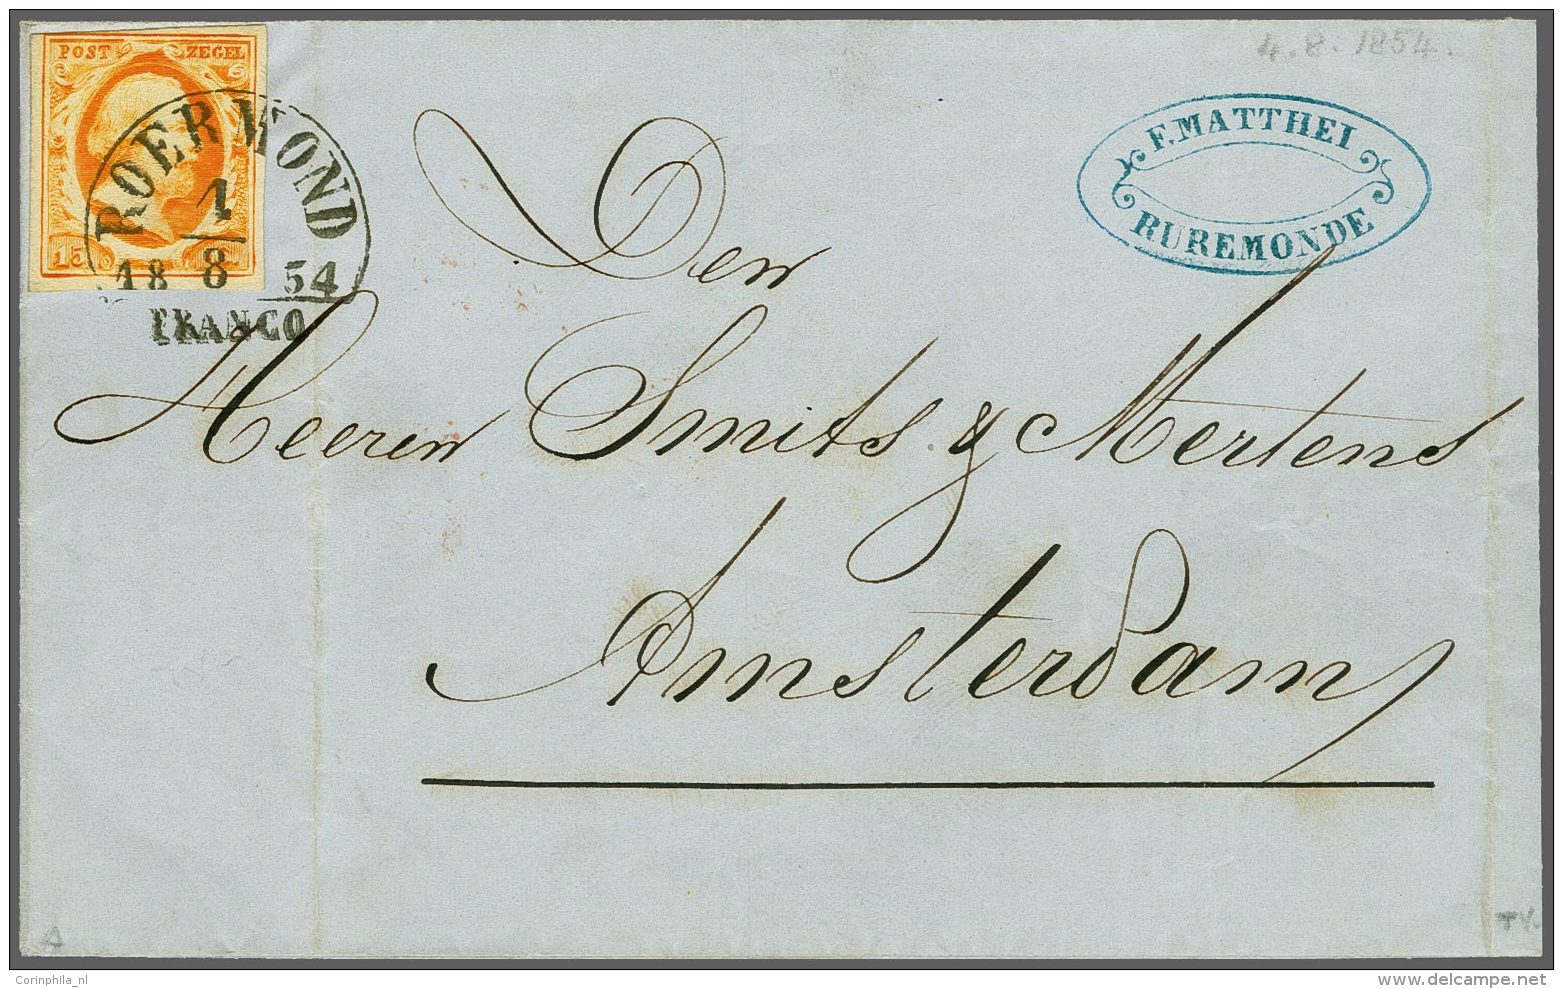 POST ZEGEL
4.8.1854.
F. MATTHEI
RUREMONDE
ROERMOND
1
18 8 54
FRANCO
15
Den
Heeren Smits & Mertens
Amsterdam
TY.
Corinphila_nl
www.delcampe.net